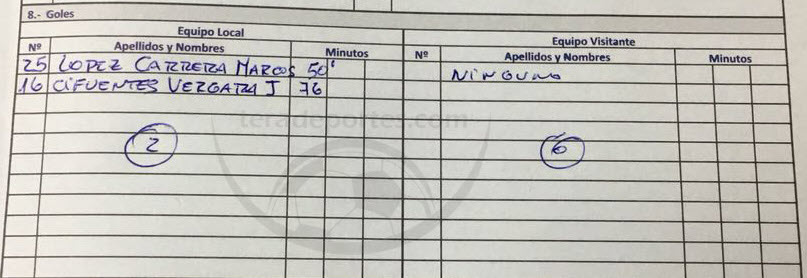 8.- Goles
Equipo Local Equipo Visitante
Nº Apellidos y Nombres Minutos Nº Apellidos y Nombres Minutos
25 LOPEZ CARRERA MARCOS 50' NINGUNO
16 CIFUENTES VERGARA J 76
teradeportes.com
2 6